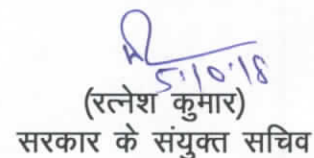 5.10.18
(रत्नेश कुमार)
सरकार के संयुक्त सचिव